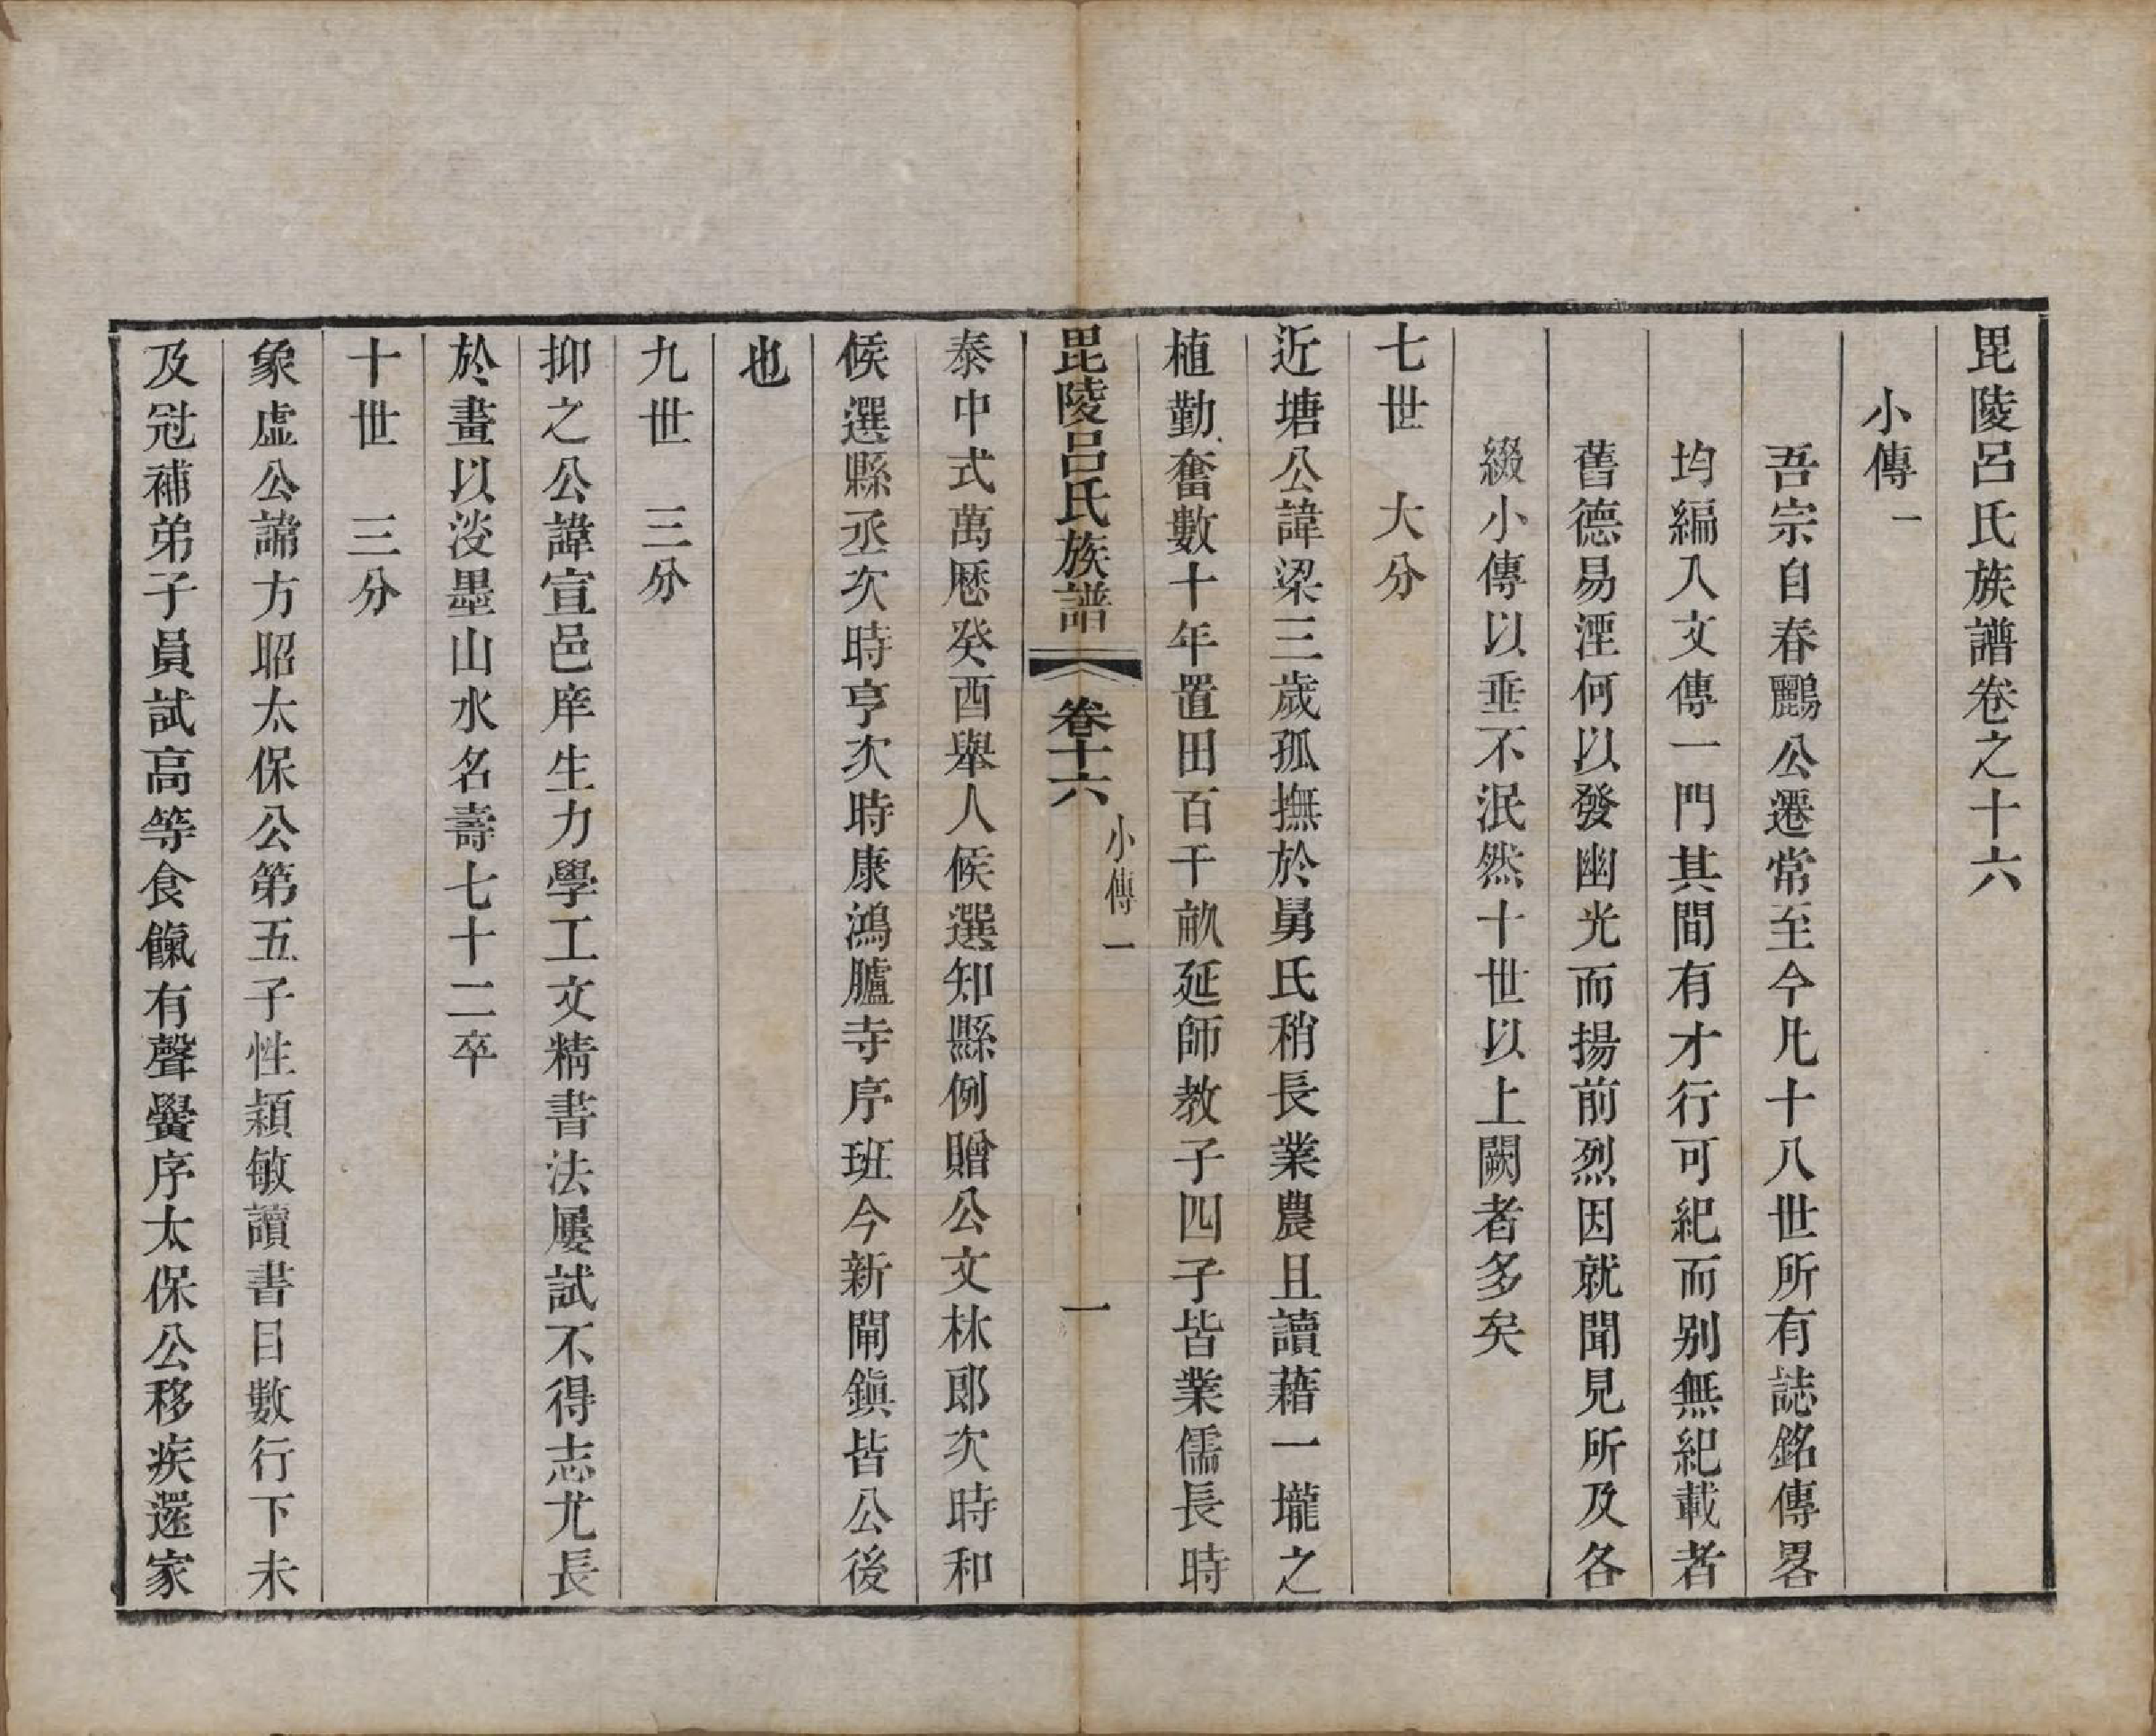 毘陵呂氏族譜卷之十六
小傳一
吾宗自春鸝公遷常至今凡十八世所有誌銘傳畧
均編入文傳一門其間有才行可紀而别無紀載者
舊德易湮何以發幽光而揚前烈因就聞見所及各
綴小傳以垂不泯然十世以上闕者多矣
七世　大分
近塘公諱梁三歲孤撫於舅氏稍長業農且讀藉一壠之
植勤奮數十年置田百千畝延師教子四子皆業儒長時
毘陵呂氏族譜　卷十六　小傳一　一
泰中式萬厯癸酉舉人候選知縣例贈公文林郎次時和
候選縣丞次時亨次時康鴻臚寺序班今新閘鎭皆公後
也
九世　三分
抑之公諱宣邑庠生力學工文精書法屢試不得志尤長
於畫以淡墨山水名壽七十二卒
十世　三分
象虛公諱方昭太保公第五子性穎敏讀書目數行下未
及冠補弟子員試高等食餼有聲黌序太保公移疾還家